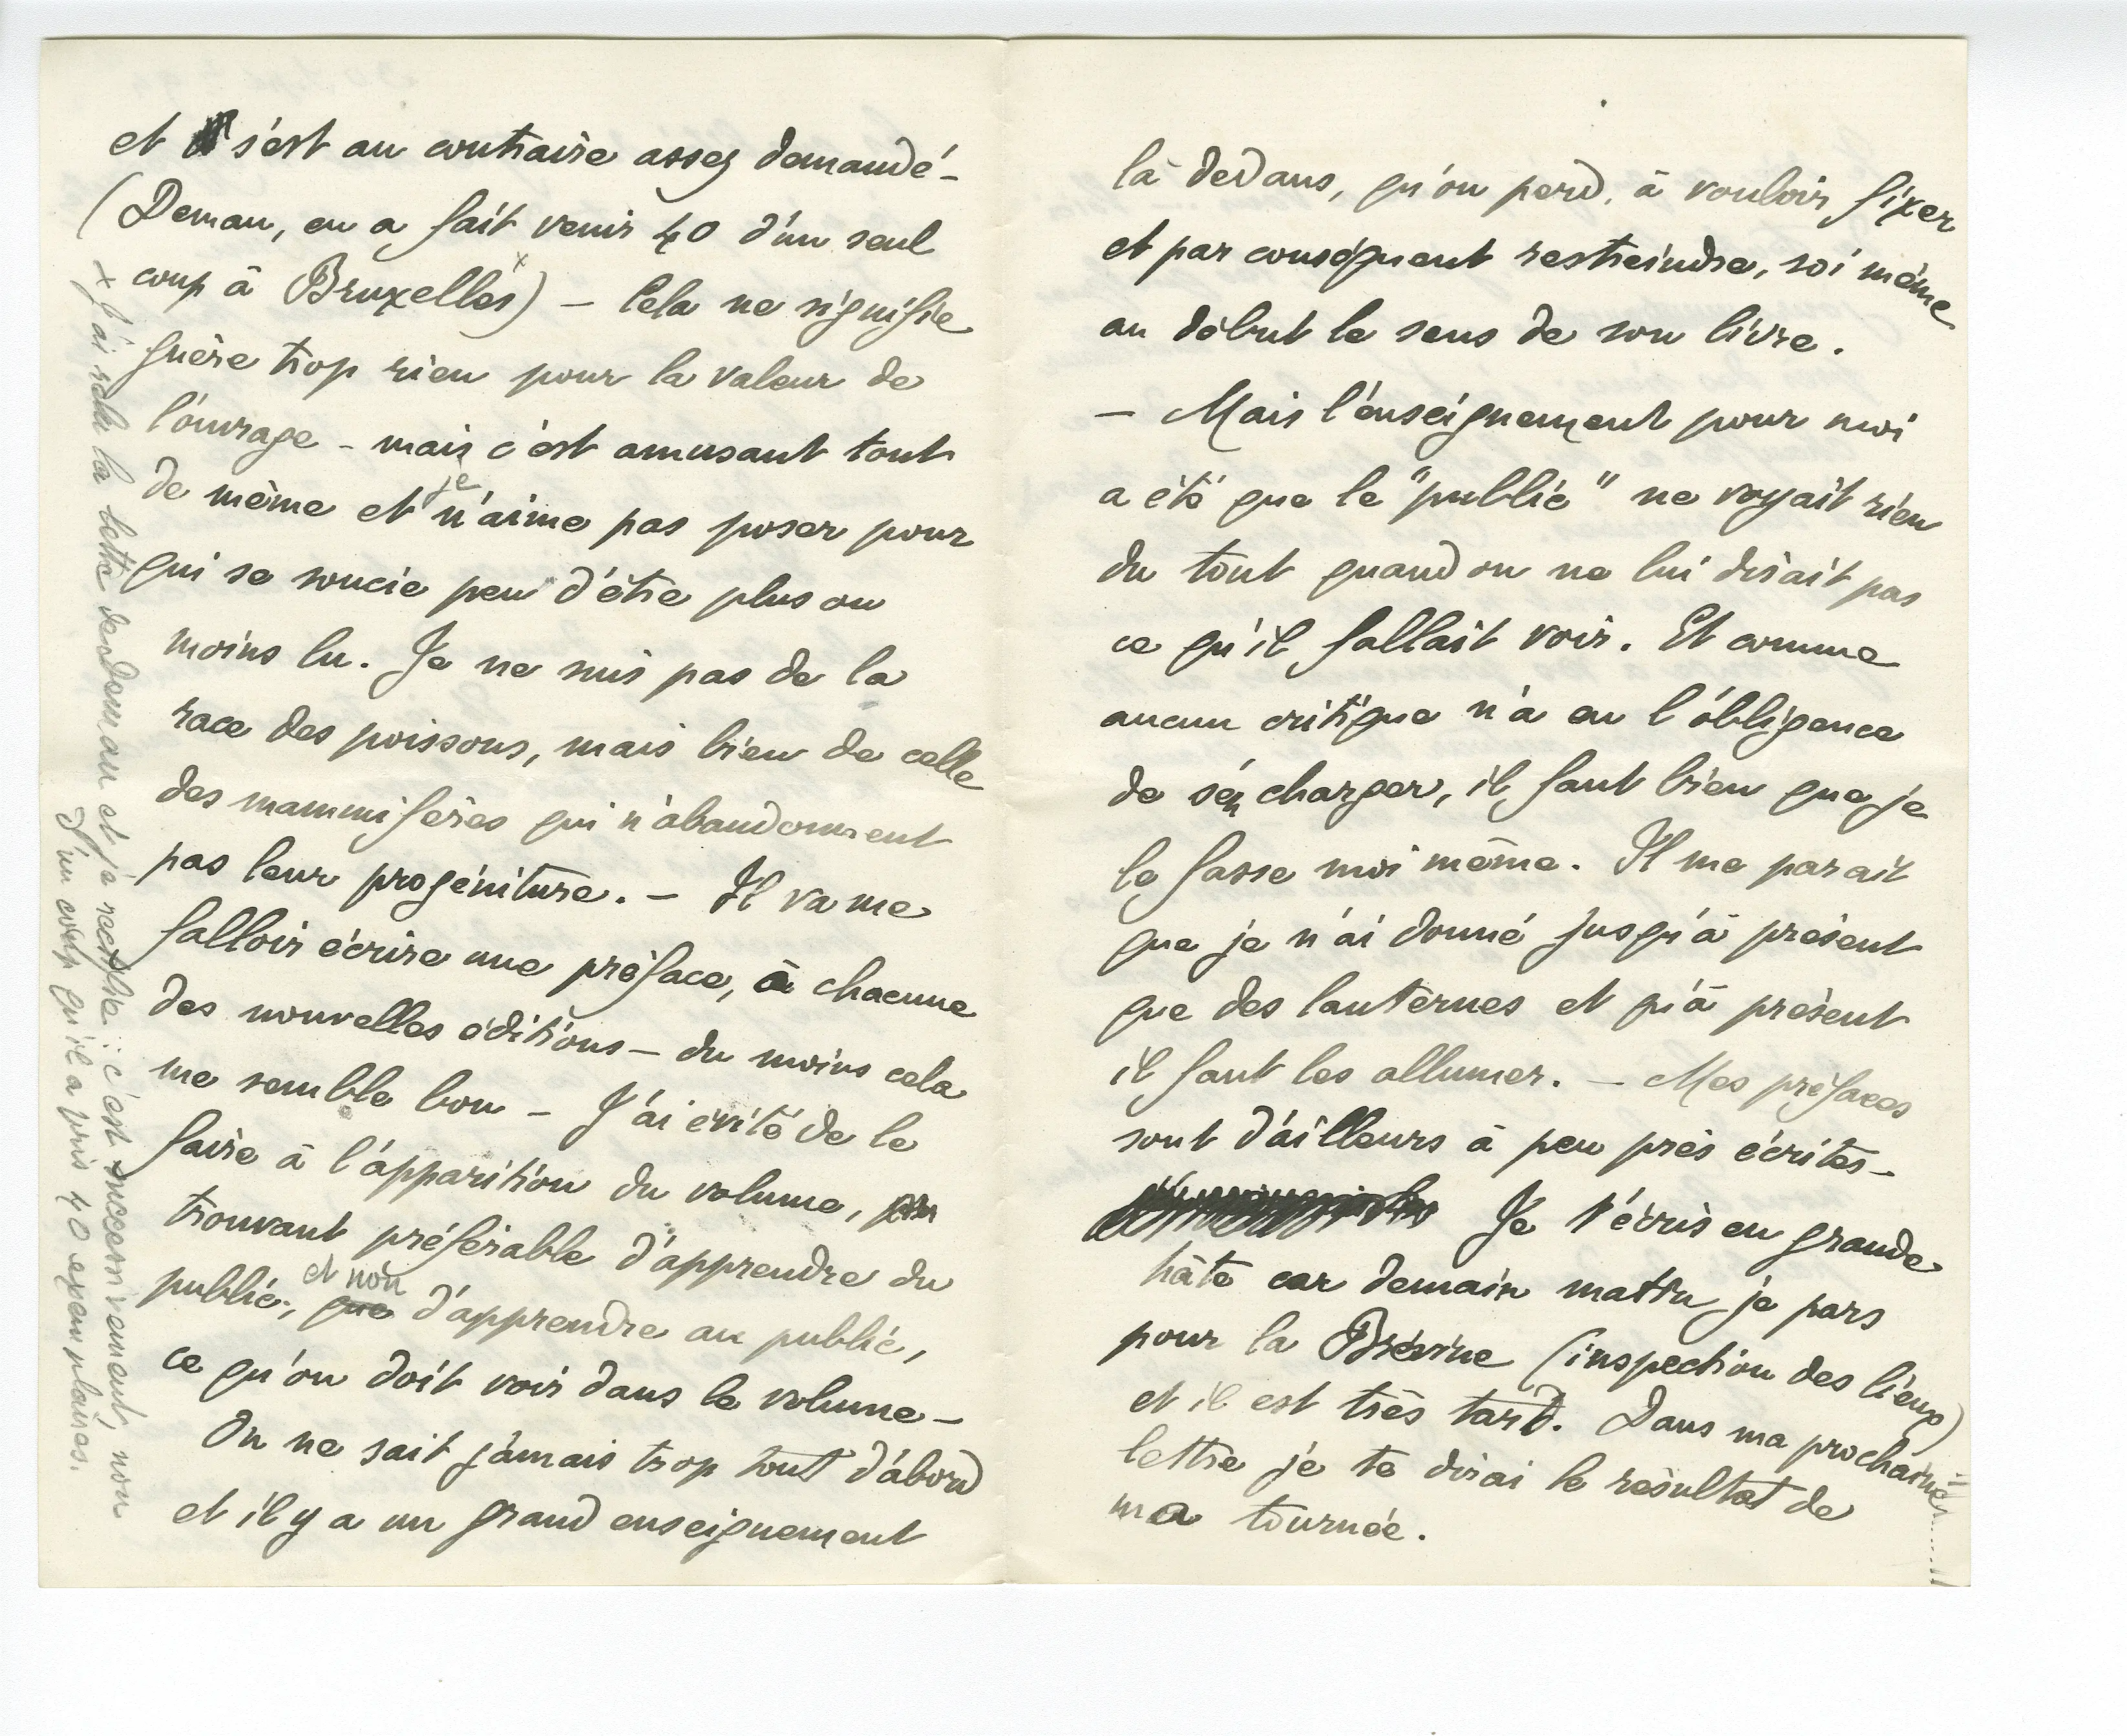 et s'est au contraire assez demandé –
(Deman, en a fait venir 40 d'un seul
coup à Bruxelles x) – Cela ne signifie
guère trop rien pour la valeur de
l'ouvrage – mais c'est amusant tout
de même et je n'aime pas poser pour
qui se soucie peu d'être plus ou
moins lu. Je ne suis pas de la
race des poissons, mais bien de celle
des mammifères qui n'abandonnent
pas leur progéniture. – Il va me
falloir écrire une préface, à chacune
des nouvelles éditions – du moins cela
me semble bon – J'ai évité de le
faire à l'apparition du volume,
trouvant préférable d'apprendre du
public, et non d'apprendre au public,
ce qu'on doit voir dans le volume –
On ne sait jamais trop tout d'abord
et il y a un grand enseignement
x J'ai relu la lettre de Deman et je rectifie : c'est successivement, non
d'un coup qu'il a pris 40 exemplaires.
là dedans, qu'on perd, à vouloir fixer
et par conséquent restreindre, soi même
au début le sens de son livre.
– Mais l'enseignement pour moi
a été que le "public" ne voyait rien
du tout quand on ne lui disait pas
ce qu'il fallait voir. Et comme
aucun critique n'a eu l'obligence
de s'en charger, il faut bien que je
le fasse moi même. Il me parait
que je n'ai donné jusqu'à présent
que des lanternes et qu'à présent
il faut les allumer. – Mes préfaces
sont d'ailleurs à peu près écrites –
Je t'écris en grande
hâte car demain matin je pars
pour la Brévine (inspection des lieux)
et il est très tard. Dans ma prochaine
lettre je te dirai le résultat de
ma tournée.